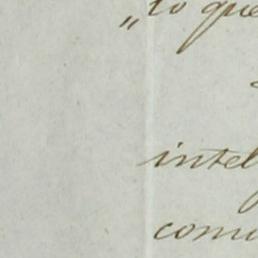 „to que
intel
com